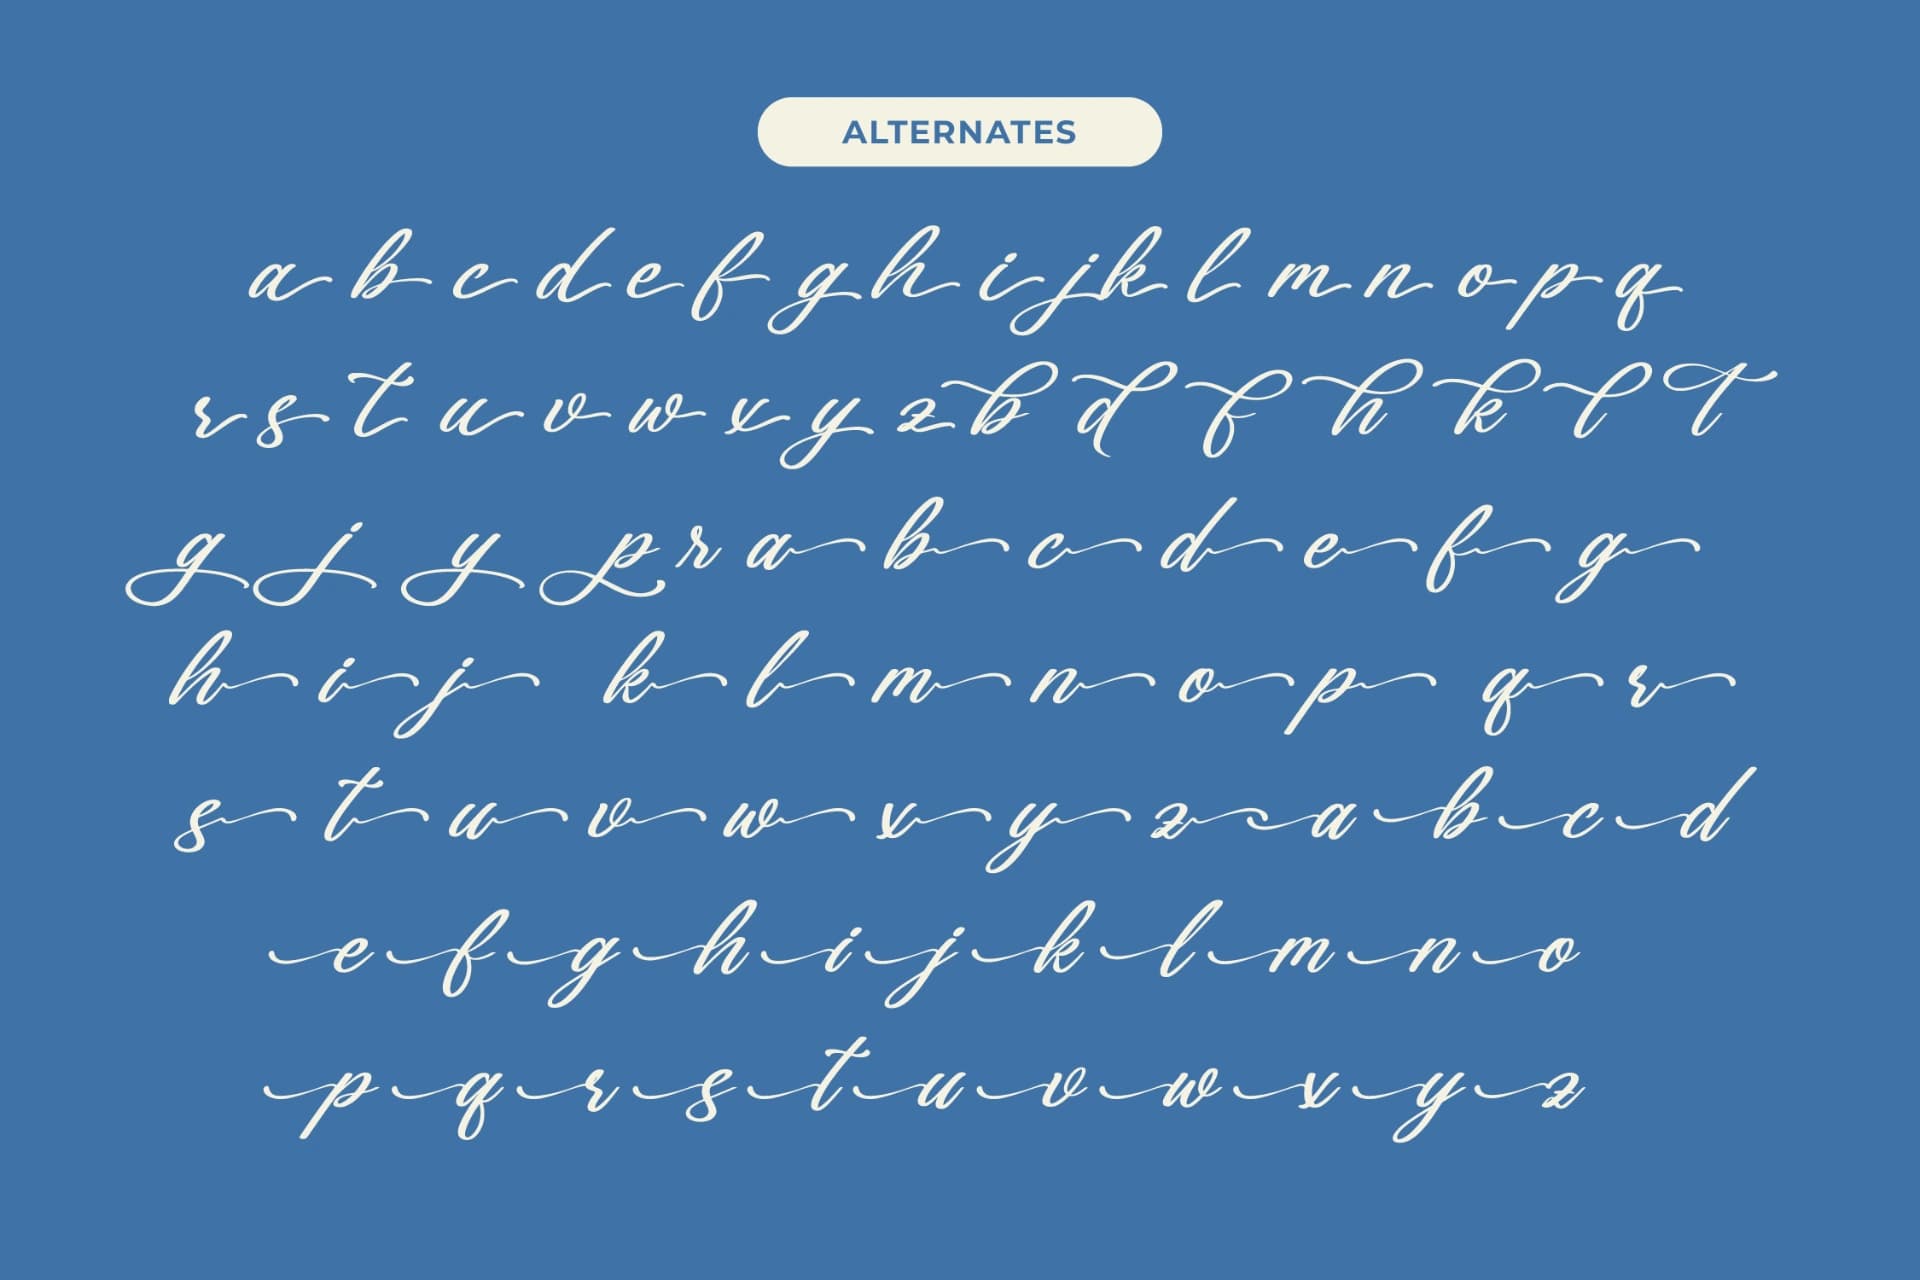 ALTERNATES
a b c d e f g h i j k l m n o p q
r s t u v w x y z b d f h k l t
g j y p r a b c d e f g
h i j k l m n o p q r
s t u v w x y z a b c d
e f g h i j k l m n o
p q r s t u v w x y z